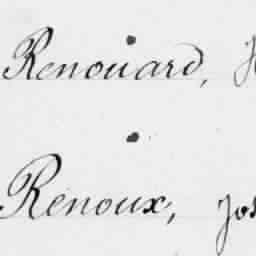 Renouard,
Renoux, Jos